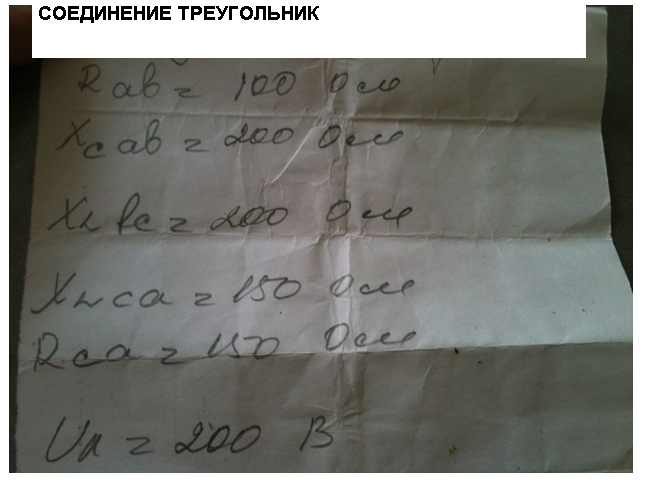 СОЕДИНЕНИЕ ТРЕУГОЛЬНИК
Rab = 100 Ом
Xcab = 200 Ом
XLbc = 200 Ом
XLca = 150 Ом
Rca = 150 Ом
Uл = 200 В